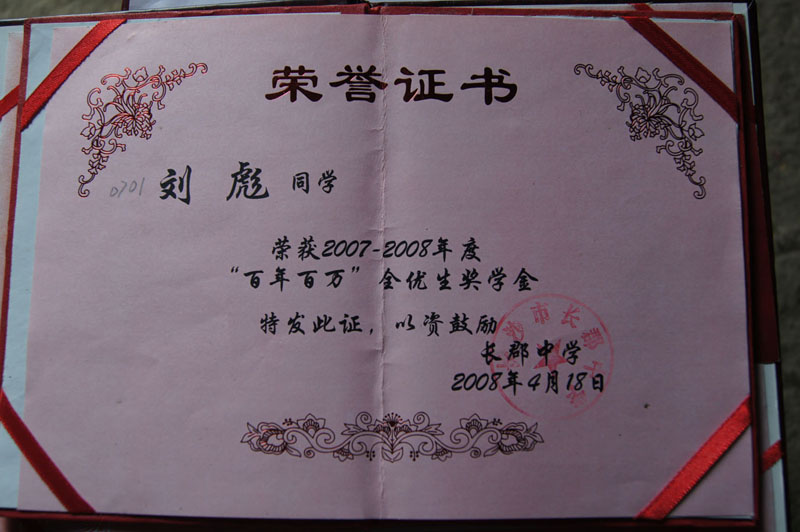 荣誉证书
0701 刘 彪 同学
荣获2007-2008年度
“百年百万”全优生奖学金
特发此证，以资鼓励
长郡中学
2008年4月18日
沙市长郡中学